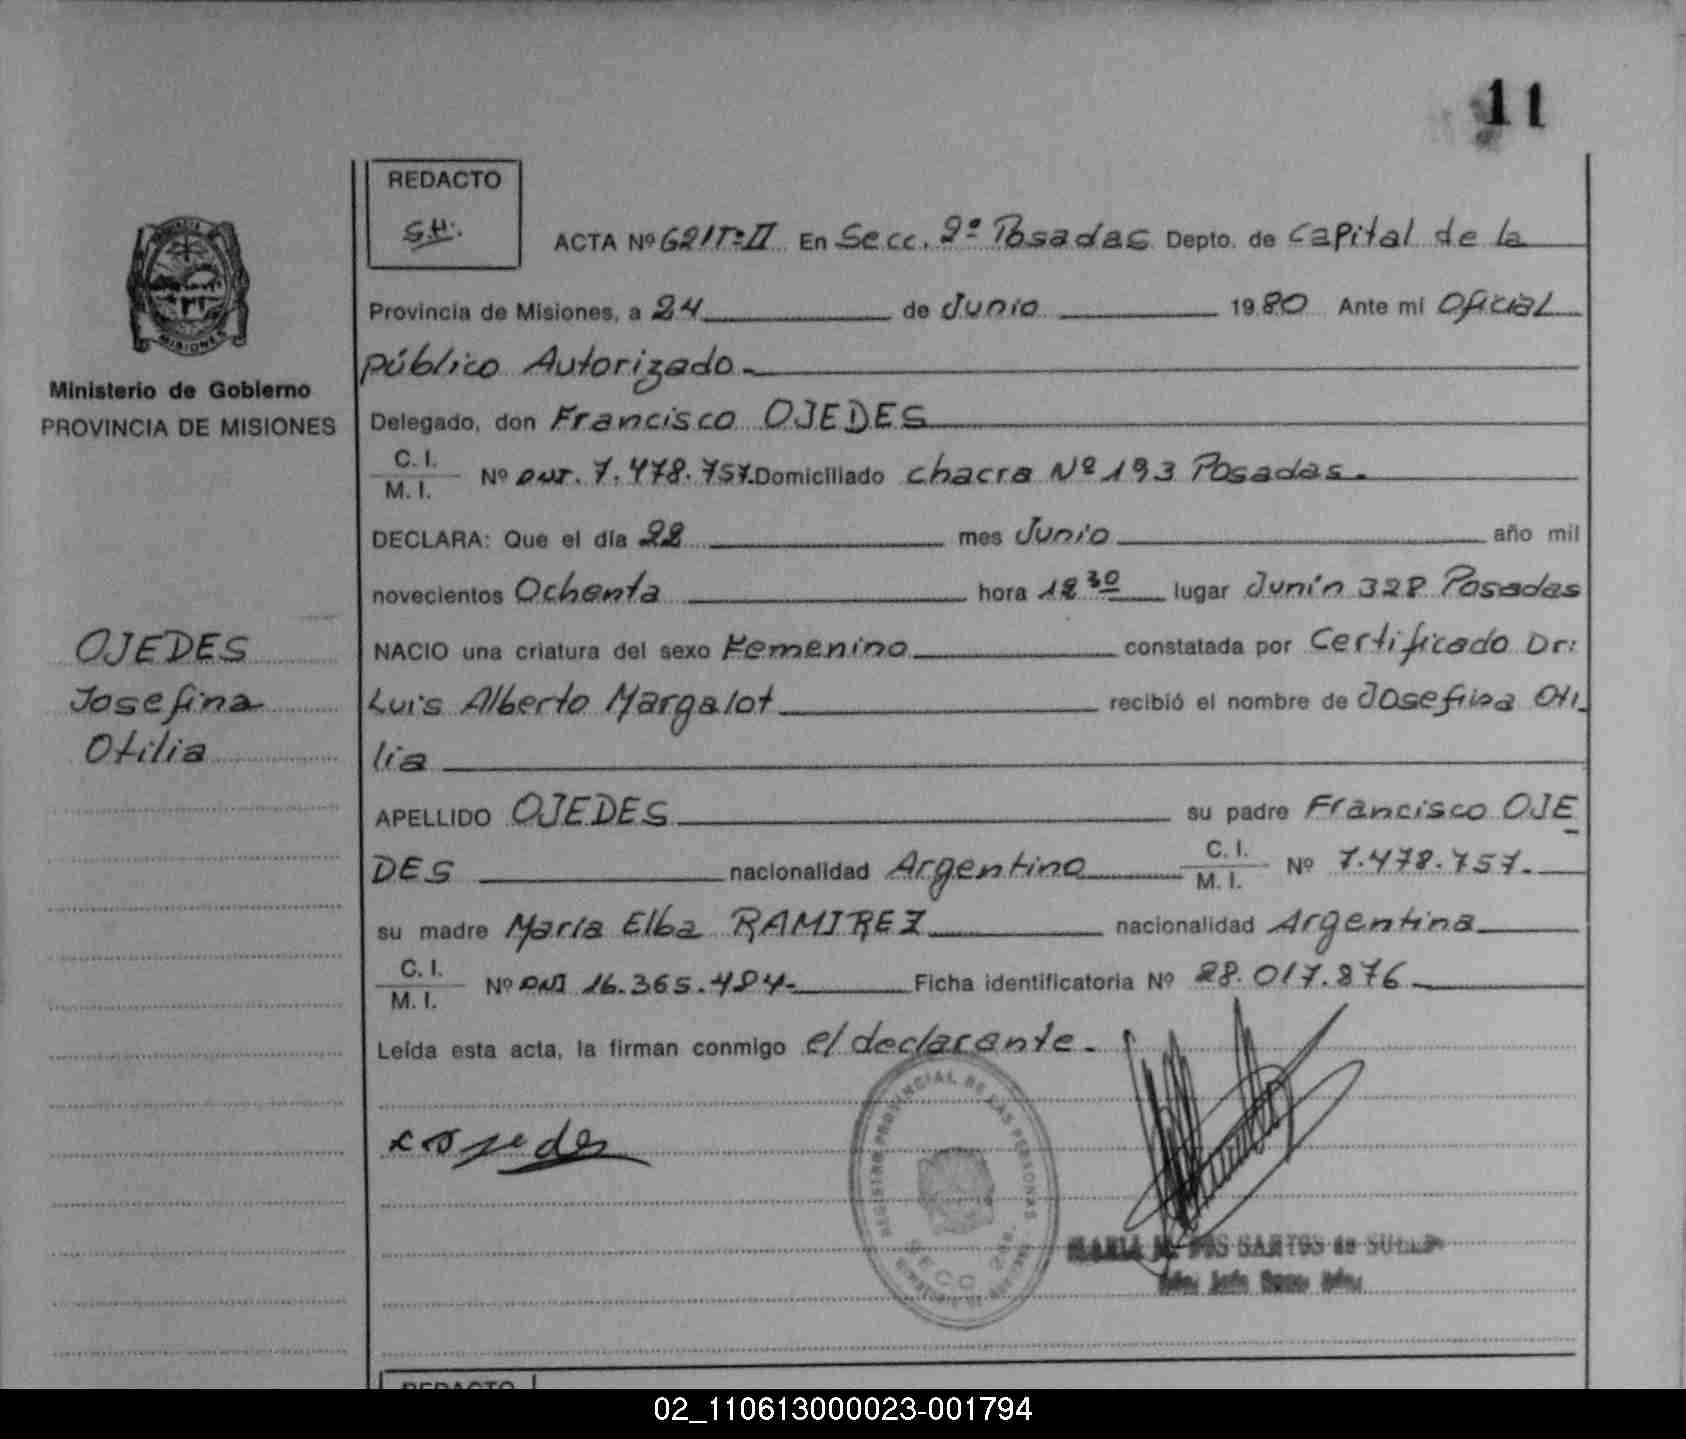 11
REDACTO
S.H.
ACTA Nº 621Tº II En Secc. 2º Posadas Depto. de Capital de la
Provincia de Misiones, a 24 de Junio 1980 Ante mi Oficial
público Autorizado.
Delegado, don Francisco OJEDES
C. I.
M. I. Nº DNI. 7.478.757. Domiciliado chacra Nº 193 Posadas.
DECLARA: Que el día 22 mes Junio año mil
novecientos Ochenta hora 12 30 lugar Junín 322 Posadas
NACIO una criatura del sexo Femenino constatada por Certificado Dr:
Luis Alberto Margalot recibió el nombre de Josefina Oti
lia
APELLIDO OJEDES su padre Francisco OJE
DES nacionalidad Argentino C. I.
M. I. Nº 7.478.757.
su madre María Elba RAMIREZ nacionalidad Argentina
C. I.
M. I. Nº DNI 16.365.484. Ficha identificatoria Nº 28.017.876
Leída esta acta, la firman conmigo el declarante.
Ministerio de Gobierno
PROVINCIA DE MISIONES
OJEDES
Josefina
Otilia
MISIONES
REGISTRO PROVINCIAL DE LAS PERSONAS
SECC 2da.
DOS SANTOS de
REDACTO
02_110613000023-001794